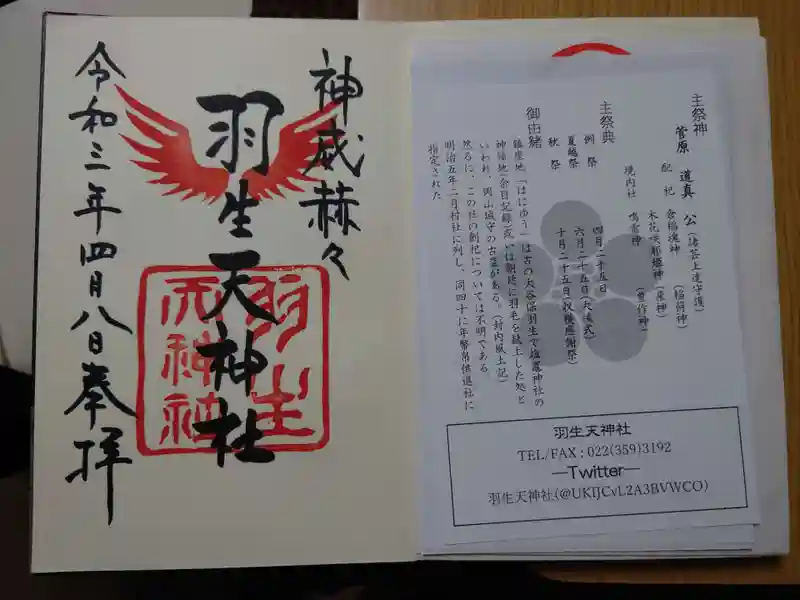 神威赫々
羽生天神社
令和三年四月八日奉拝
羽生天神社
主祭神
菅原 道真 公(諸芸上達守護)
配祀 倉稲魂神 (稲荷神)
木花咲耶姫神(産神)
境内社 鳴雷神 (豊作神)
主祭典
例祭 四月二十五日
夏越祭 六月二十五日(大祓式)
秋祭 十月二十五日(収穫感謝祭)
御由緒
鎮座地「はにゆう」は古の大谷保羽生で塩竈神社の
神領地(余目記録)或いは朝廷に羽毛を献上した処と
いわれ、岡山城守の古塁がある。(封内風土記)
然るに、この社の創祀については不明である
明治五年二月村社に列し、同四十に年幣帛供進社に
指定された
羽生天神社
TEL/FAX : 022(359)3192
―Twitter―
羽生天神社(@UKIJCvL2A3BVWCO)